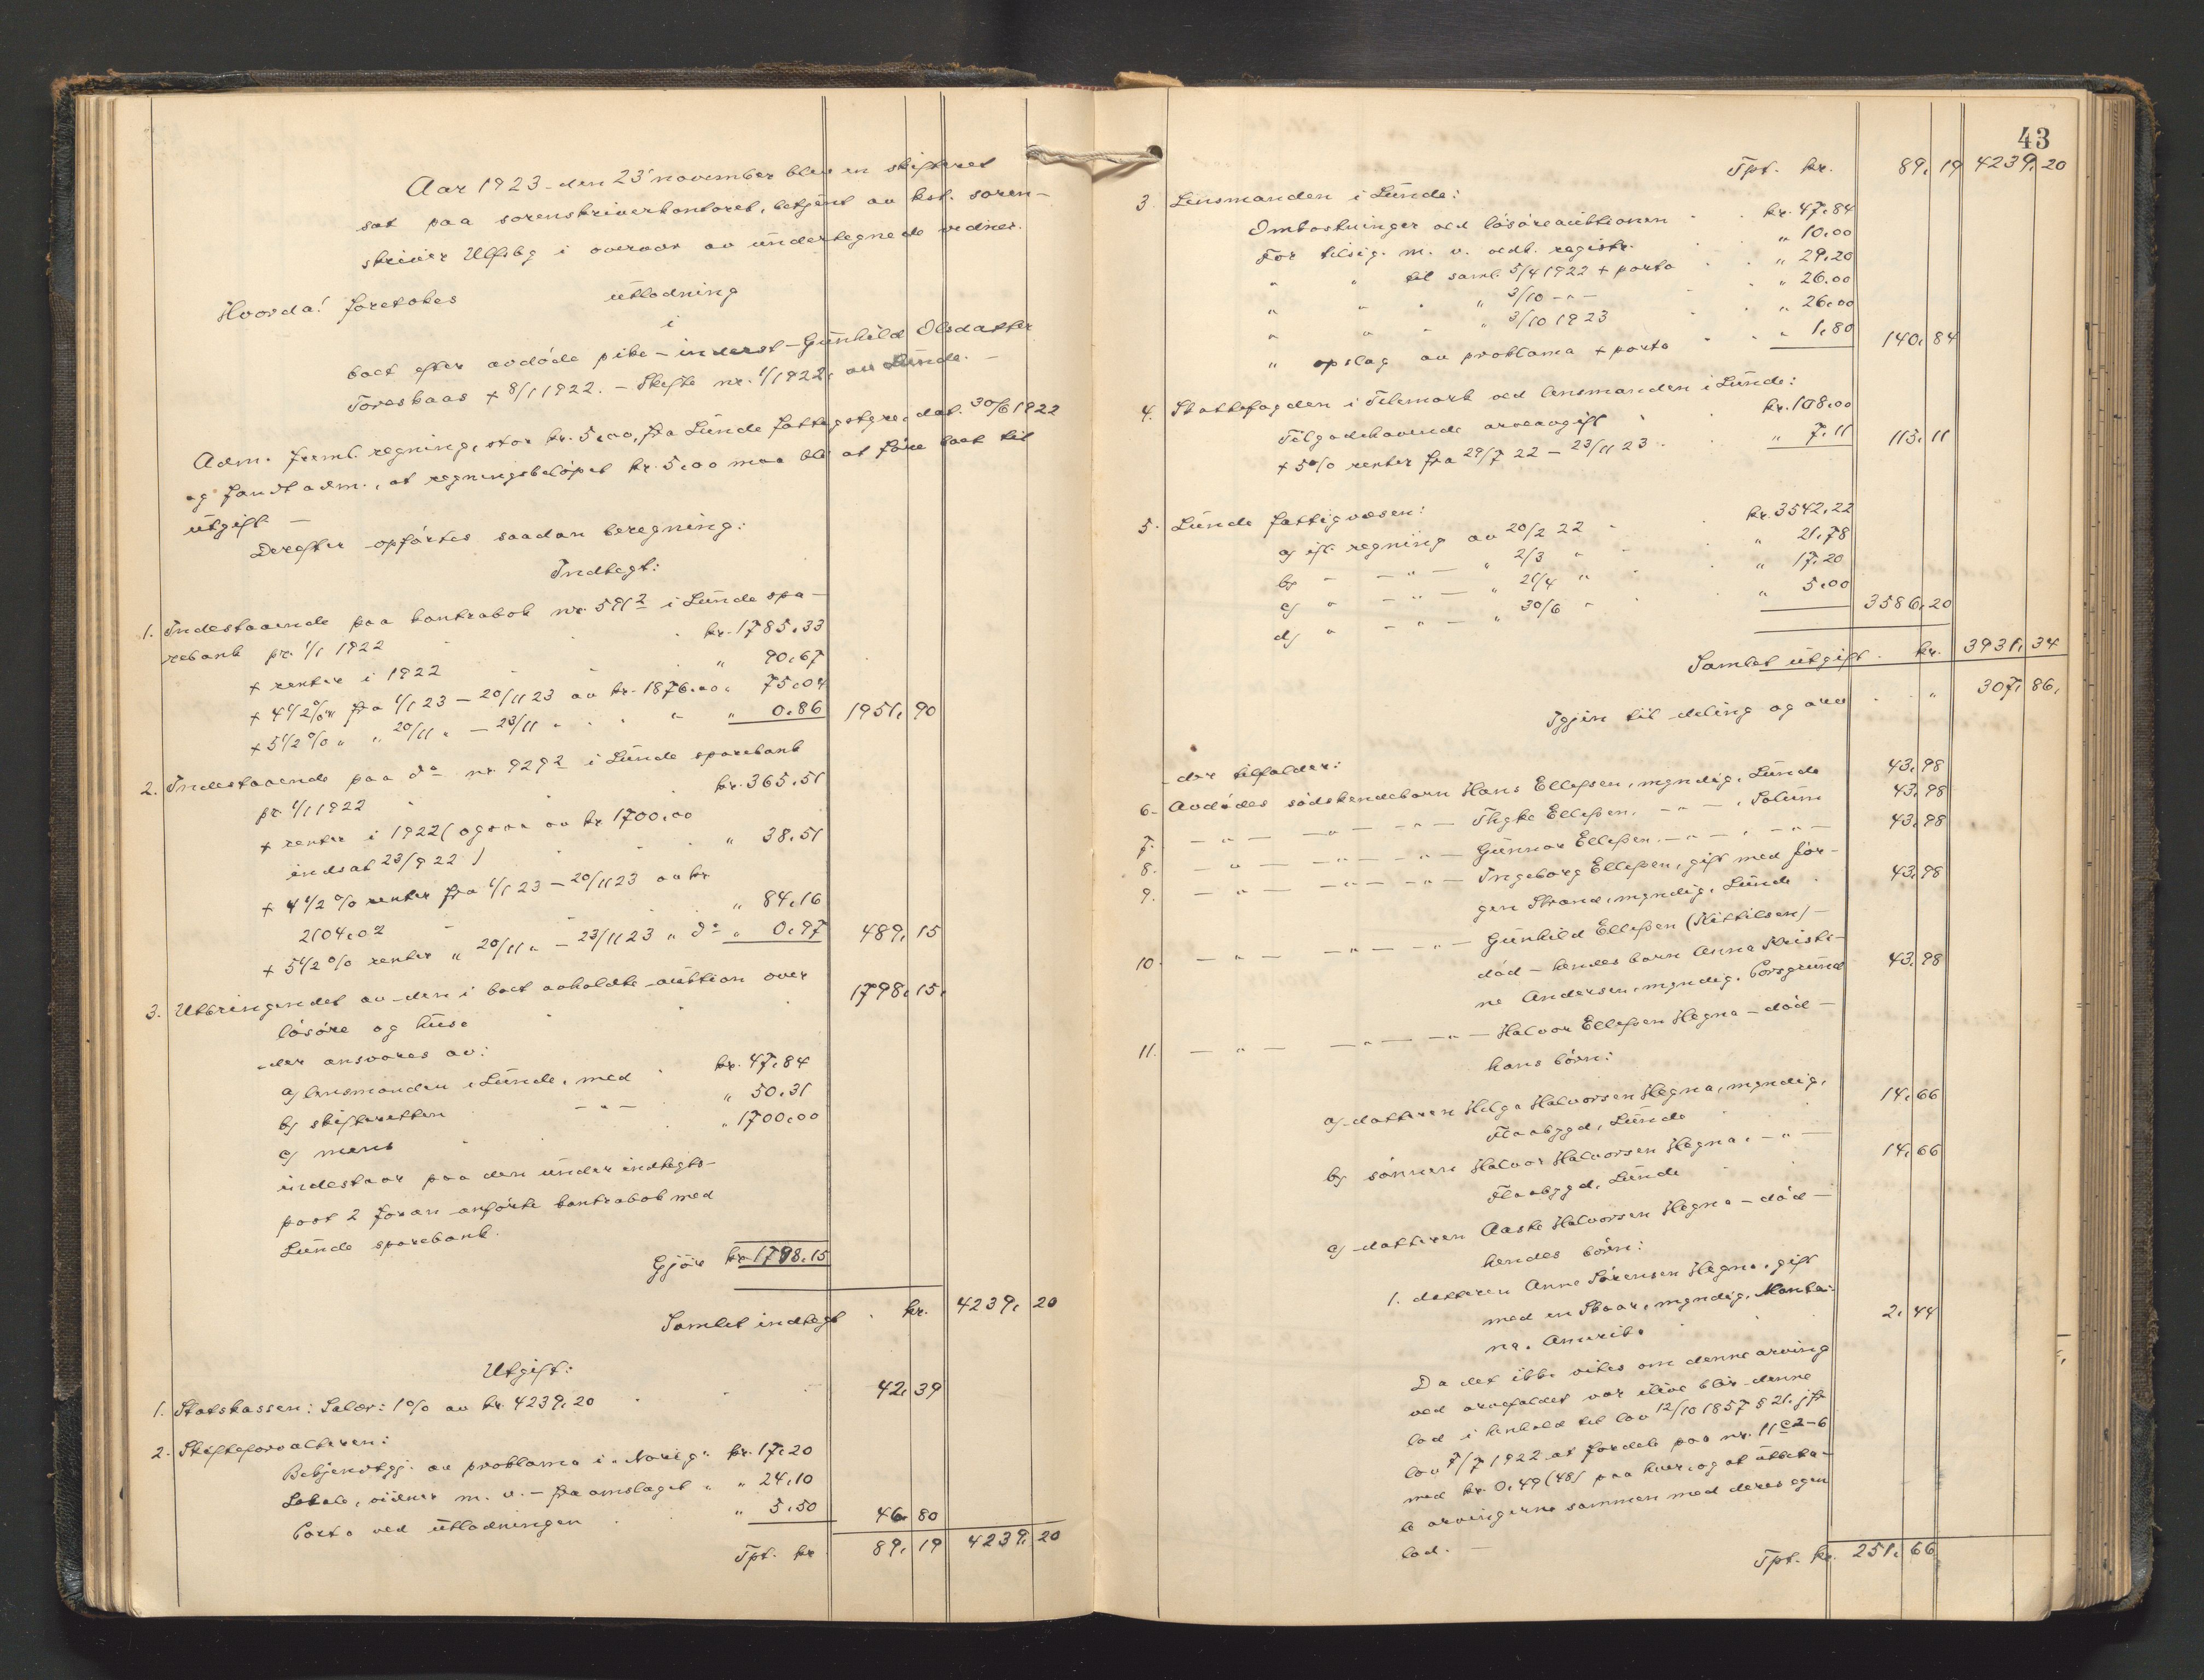 Aar 1923 den 23' november blev en skifteret
sat paa sorenskriverkontoret, betjent av kst. soren-
skriver Ulfsby i overvær av undertegnede vidner.
Hvorda! foretokes utlodning
i
boet efter avdøde pike - inderst - Gunhild Olsdatter
Toreskaas + 8/1 1922. - Skifte nr. 1/1922, av Lunde. -
Adm. freml. regning, stor kr. 5.00, fra Lunde fattigstyre, dat. 30/6 1922
og fandt adm., at regningsbeløpet kr. 5.00 maa bli at føre boet til
utgift -
Derefter opførtes saadan beregning:
Indtegt:
1. Indestaaende paa kontrabok nr. 5912 i Lunde spa-
rebank pr. 1/1 1922 kr. 1785.33
+ renter i 1922 " 90.67
+ 4 1/2 % " fra 1/1 23 - 20/11 23 av kr. 1876.00 " 75.04
+ 5 1/2 % " " 20/11 " - 23/11 " " " 0.86 1951.90
2. Indestaaende paa do nr. 9292 i Lunde sparebank
pr. 1/1 1922 kr. 365.51
+ renter i 1922 (ogsaa av kr 1700.00
indsat 23/9 22) " 38.51
+ 4 1/2 % renter fra 1/1 23 - 20/11 23 av kr
2104.02 " 84.16
+ 5 1/2 % renter " 20/11 " - 23/11 23 " do " 0.97 489.15
3. Utbringendet av den i boet avholdte auktion over
løsøre og huse 1798.15.
der ansvares av:
a/ lensmanden i Lunde, med kr. 47.84
b/ skifteretten - " - " 50.31
c/ mens " 1700.00
indestaar paa den under indtegts-
post 2 foran anførte kontrabok med
Lunde sparebank.
Gjør kr. 1798.15
Samlet indtegt kr. 4239.20
Utgift:
1. Statskassen: Salær: 1% av kr. 4239.20 42.39
2. Skifteforvalteren:
Bekjendtgj. av proklama i "Norig": kr. 17.20
Lokale, vidner m. v. - fra omslaget " " 24.10
Porto ved utlodningen " 5.50 46.80
Tpt. kr 89.19 4239.20
43
Tpt. kr. 89.19 4239.20
3. Lensmanden i Lunde:
Omkostninger ved løsøreauktionen kr. 47.84
For tilsig. m. v. vedk. registr. " 10.00
" " til saml. 5/4 1922 + porto " 29.20
" " " " 3/10 - " - " 26.00
" " " " 3/10 1923 " 26.00
" opslag av proklama + porto " 1.80 140.84
4. Skattefogden i Telemark ved lensmanden i Lunde:
Tilgodehavende arveavgift kr. 108.00
+ 5% renter fra 29/7 22 - 23/11 23 " 7.11 113.11
5. Lunde fattigvæsen:
a/ ifl. regning av 20/2 22 kr. 3542.22
b/ " - " - " 2/3 " " 21.78
c/ " - " - " 21/4 " " 17.20
d/ " - " - " 30/6 " " 5.00
3586.20
Samlet utgift kr. 3931.34
Igjen til deling og arv " 307.86.
der tilfalder:
6. Avdødes sødskendebarn Hans Ellefsen, myndig, Lunde 43.98
7. - " - - " - - " - Thyke Ellefsen, - " - , Solum 43.98
8. - " - - " - - " - Gunnar Ellefsen - " - , - " - 43.98
9. - " - - " - - " - Ingeborg Ellefsen, gift med Jør-
gen Strand, myndig, Lunde 43.98
10. - " - - " - - " - Gunhild Ellefsen (Kittilsen) -
død - hendes barn Anna Kristi-
ne Andersen, myndig, Porsgrund 43.98
11. - " - - " - - " - Halvor Ellefsen Hegna - død -
hans børn:
a/ datteren Helga Halvorsen Hegna, myndig,
Flaabygd, Lunde 14.66
b/ sønnen Halvor Halvorsen Hegna, - " -
Flaabygd, Lunde 14.66
c/ datteren Aaste Halvorsen Hegna - død -
hendes børn:
1. datteren Anne Sørensen Hegna, gift
med en Skaar, myndig, Monta-
na. Amerika 2.44
Da det ikke vites om denne arving
ved arvefaldet var ilive blir denne
lod i henhold til lov 12/10 1857 § 21. jfr.
lov 7/7 1922 at fordele paa nr. 11 c 2-6
med kr. 0.49 (48) paa hver, og at utbeta-
le arvingerne sammen med deres egen
lod. -
Tpt. kr. 251.66